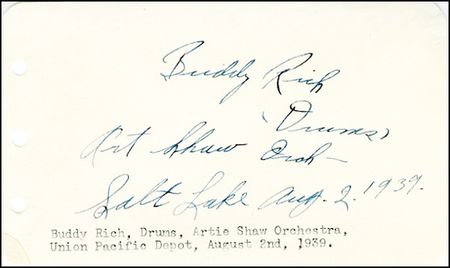 Buddy Rich
"Drums"
Art Shaw Orch-
Salt Lake Aug. 2. 1939.
Buddy Rich, Drums, Artie Shaw Orchestra,
Union Pacific Depot, August 2nd, 1939.